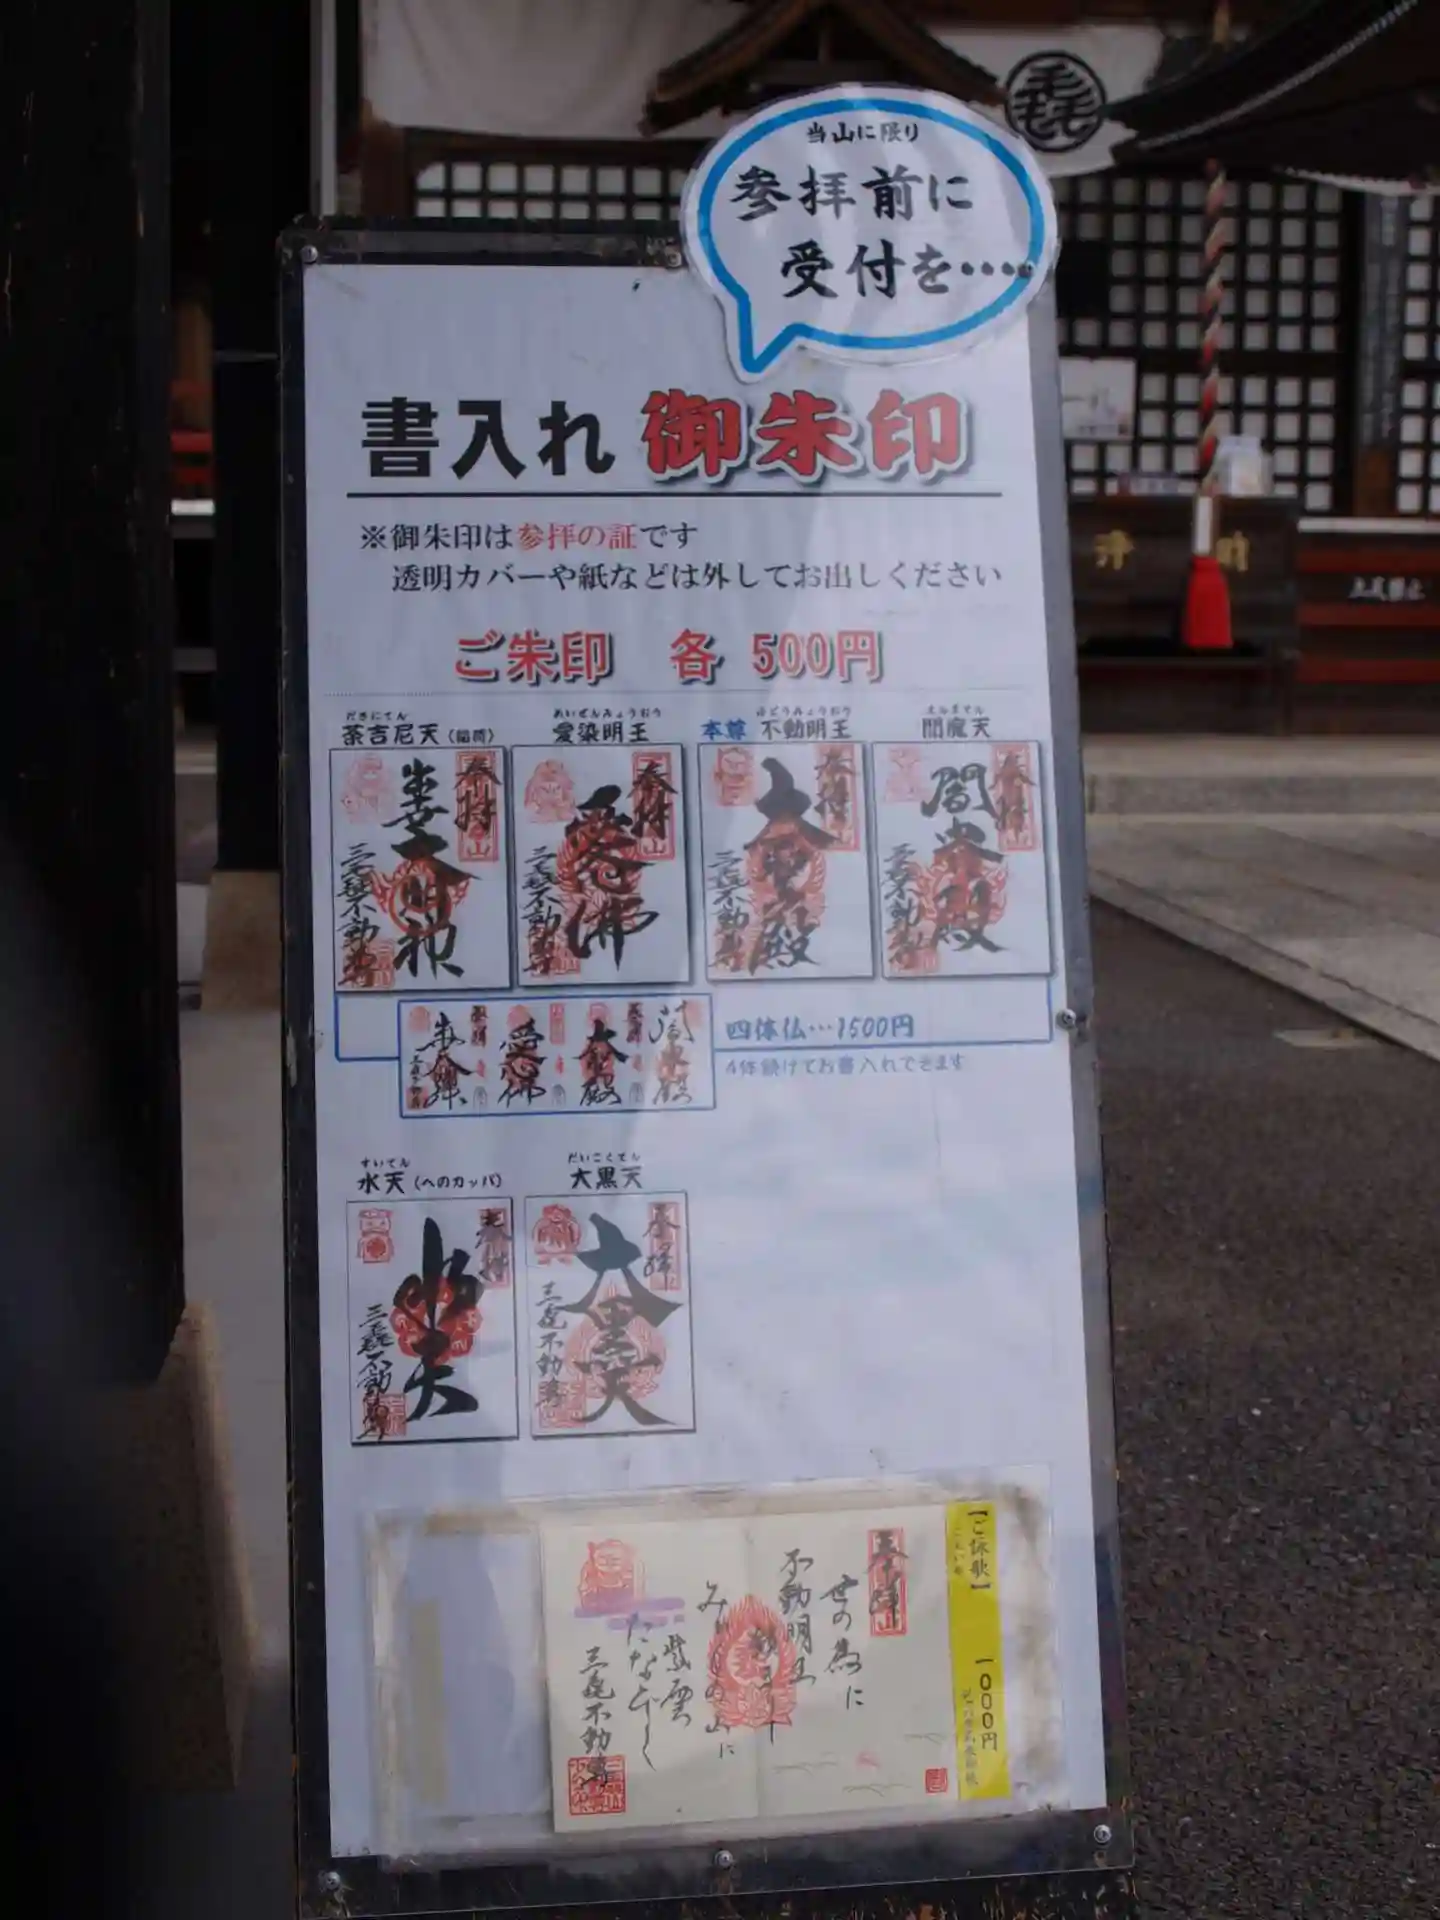 当山に限り
参拝前に
受付を‥‥
書入れ 御朱印
※御朱印は参拝の証です
透明カバーや紙などは外してお出しください
ご朱印 各 500円
だきにてん
荼吉尼天(稲荷)
あいぜんみょうおう
愛染明王
ふどうみょうおう
本尊 不動明王
えんまてん
閻魔天
奉拝
三毳不動尊
奉拝
愛染佛
三毳不動尊
奉拝
大聖殿
三毳不動尊
奉拝
閻魔殿
三毳不動尊
四体仏…1500円
4体続けてお書入れできます
すいてん
水天(へのカッパ)
だいこくてん
大黒天
奉拝
水天
三毳不動尊
奉拝
大黒天
三毳不動尊
【ご詠歌】
一000円
奉拝
世の為に
不動明王
みかもの山に
紫雲
たなびく
三毳不動尊